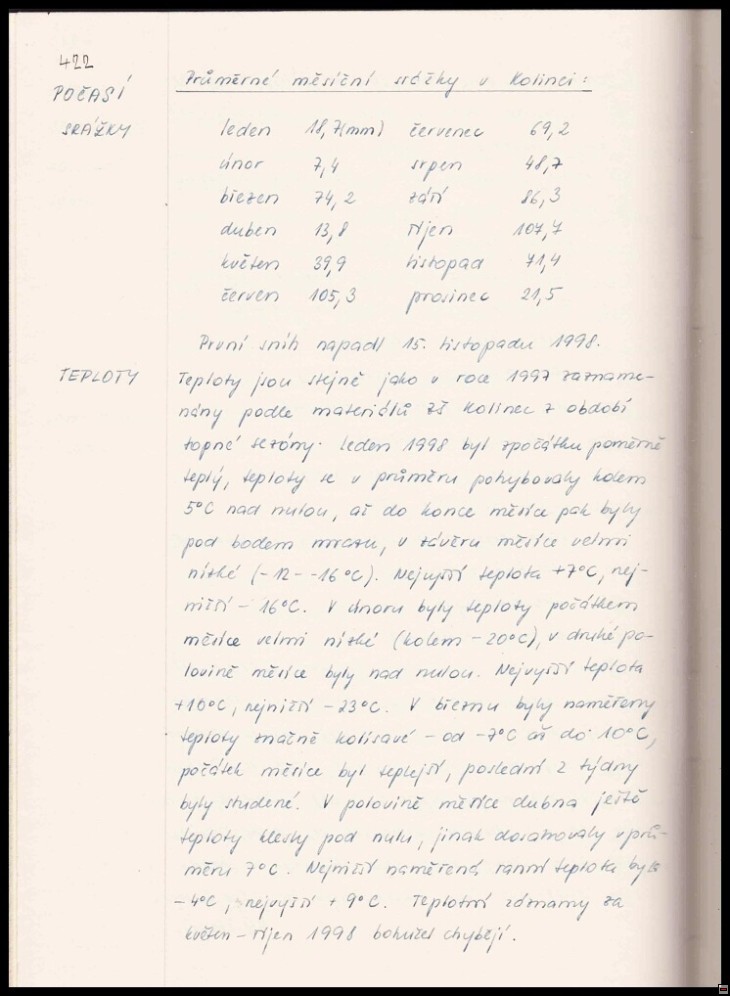 422
POČASÍ
SRÁŽKY
Průměrné měsíční srážky v Kolinci:
leden 18,7(mm) červenec 69,2
únor 7,4 srpen 48,7
březen 74,2 září 86,3
duben 13,8 říjen 107,7
květen 39,9 listopad 71,4
červen 105,3 prosinec 21,5
První sníh napadl 15. listopadu 1998.
TEPLOTY
Teploty jsou stejně jako v roce 1997 zazname-
nány podle materiálů ZŠ Kolinec z období
topné sezóny. Leden 1998 byl zpočátku poměrně
teplý, teploty se v průměru pohybovaly kolem
5°C nad nulou, až do konce měsíce pak byly
pod bodem mrazu, v závěru měsíce velmi
nízké (-12 - -16°C). Nejvyšší teplota +7°C, nej-
nižší - 16°C. V únoru byly teploty počátkem
měsíce velmi nízké (kolem -20°C), v druhé po-
lovině měsíce byly nad nulou. Nejvyšší teplota
+10°C, nejnižší -23°C. V březnu byly naměřeny
teploty značně kolísavé - od -7°C až do 10°C,
počátek měsíce byl teplejší, poslední 2 týdny
byly studené. V polovině měsíce dubna ještě
teploty klesly pod nulu, jinak dosahovaly v prů-
měru 7°C. Nejnižší naměřená ranní teplota byla
-4°C, nejvyšší +9°C. Teplotní záznamy za
květen - říjen 1998 bohužel chybějí.